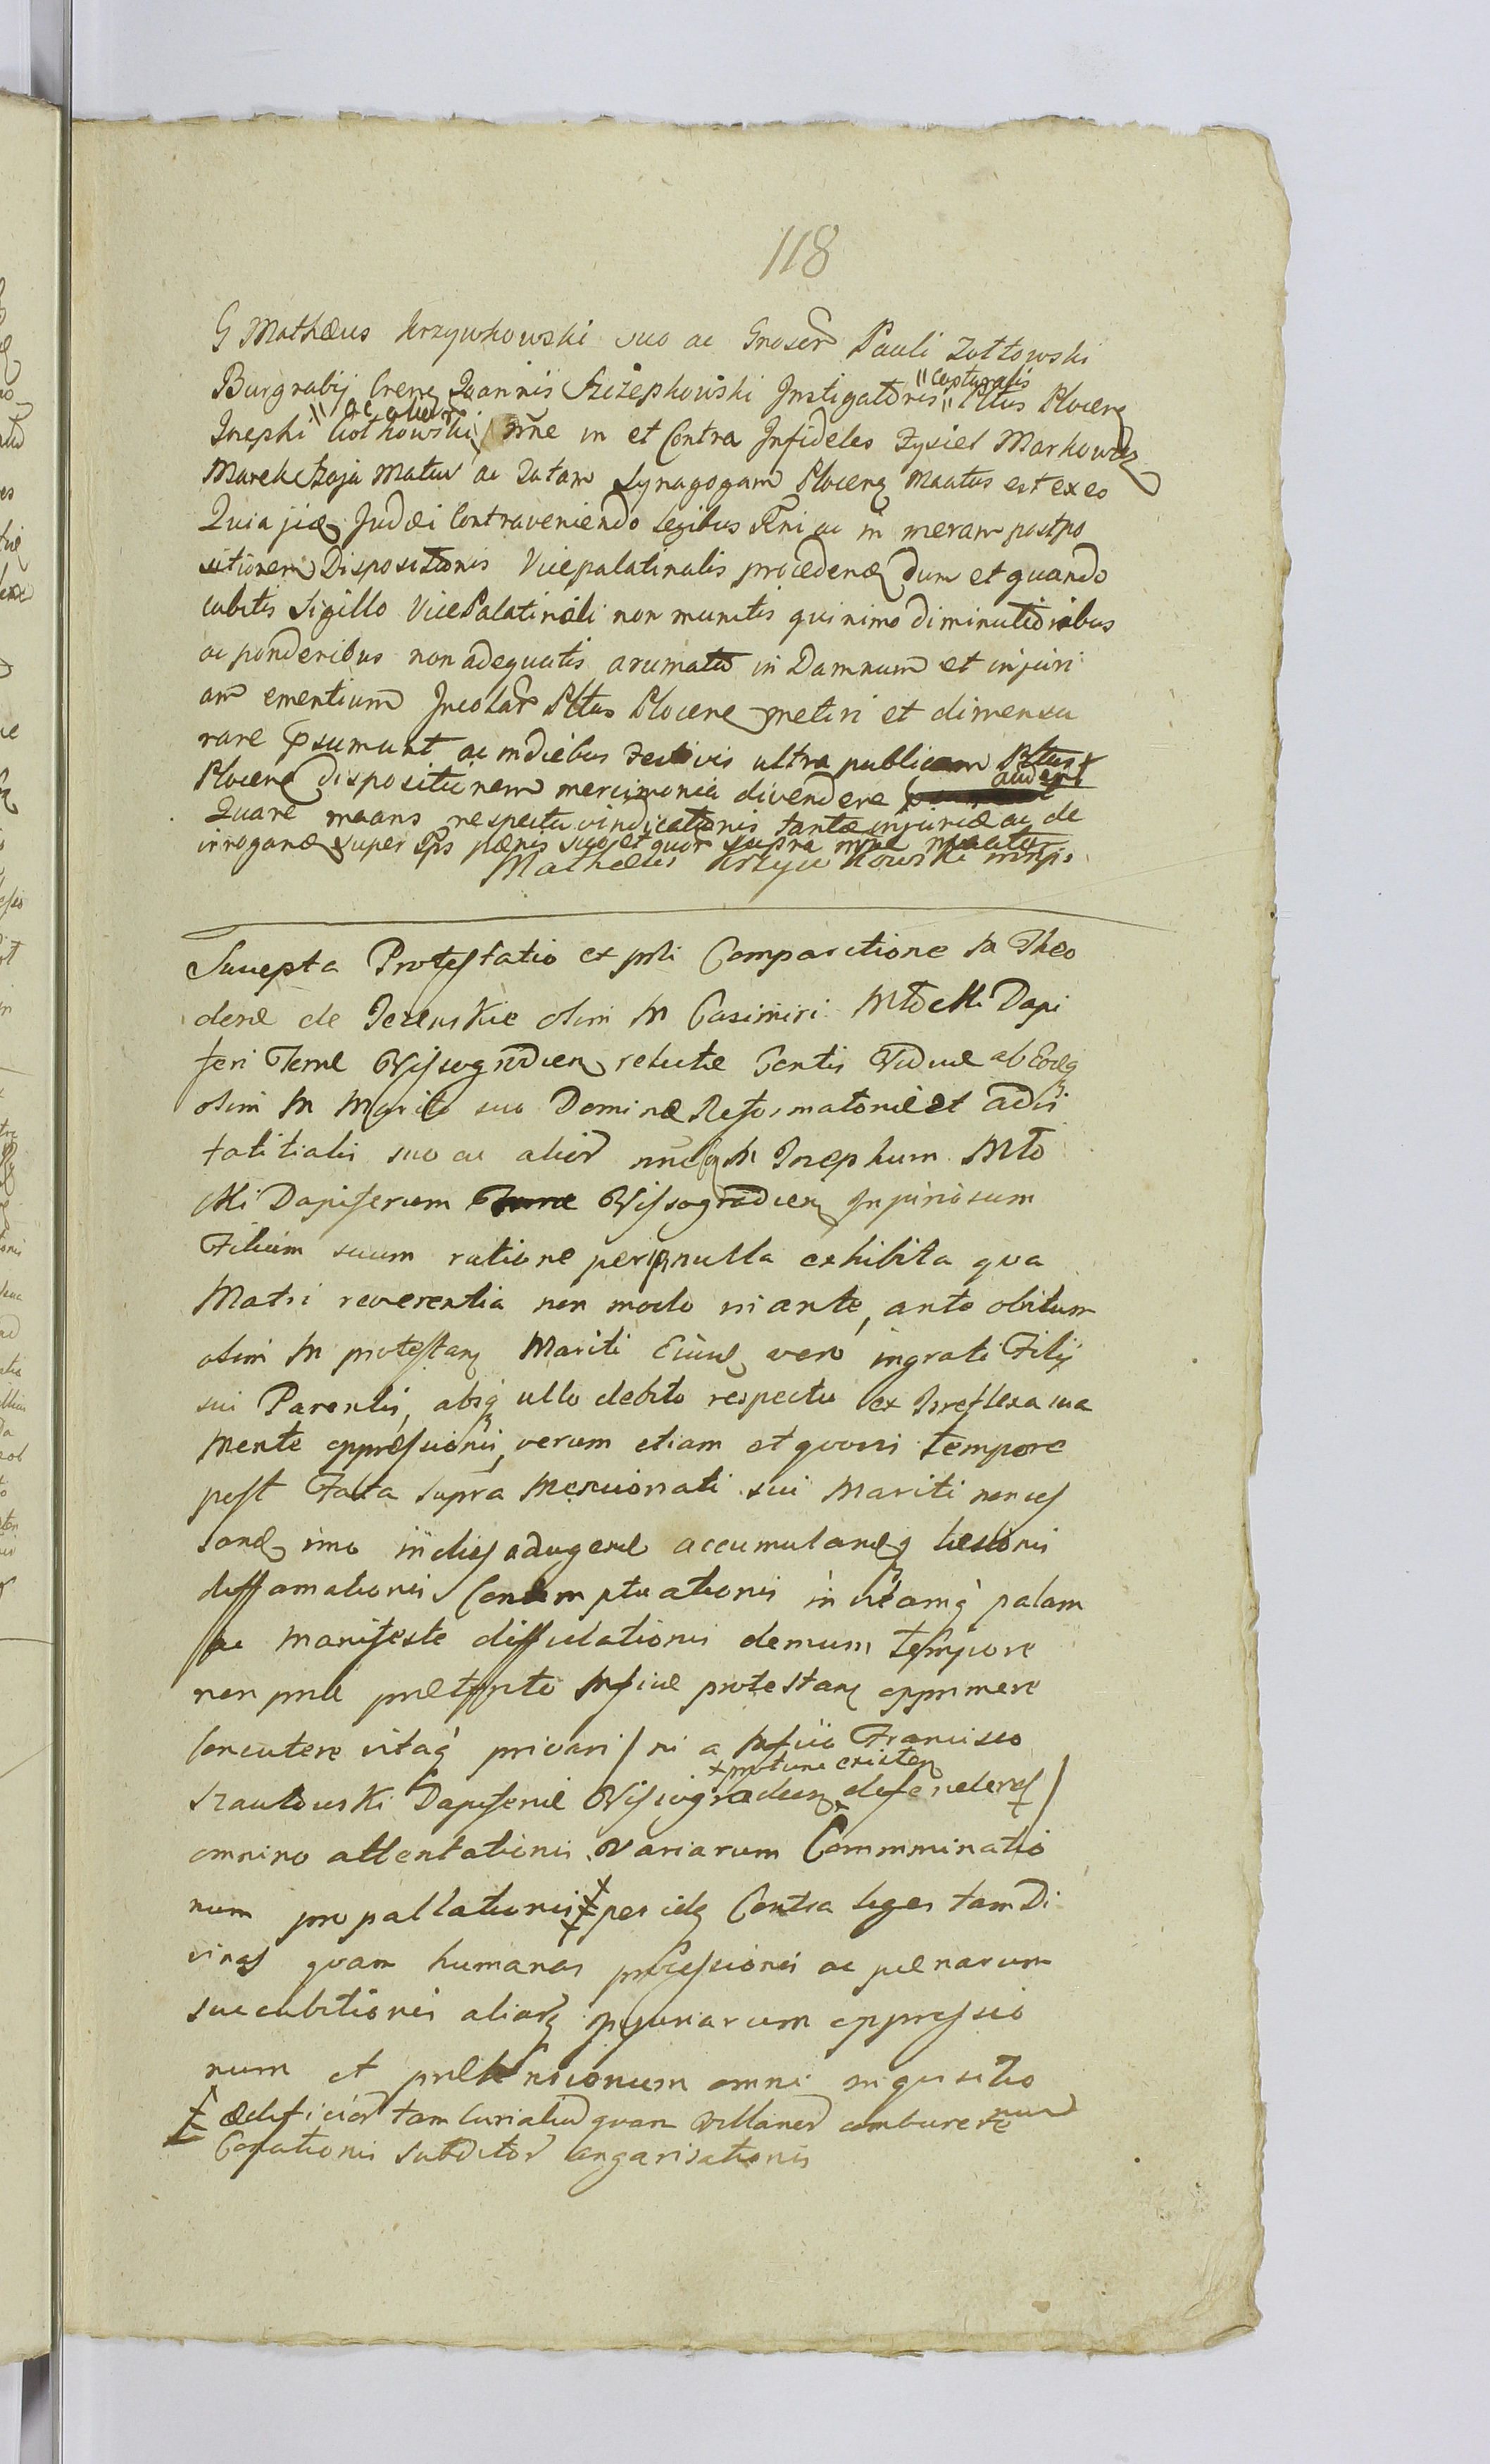 118
G Mathæus Krzywkowski suo ac Gnoser Pauli Zottowski
Burgrabij Crene Joannis Szczepkowski Instigatoris "Capturalis" Pltus Plocen
Josephi Ciołkowski "ac alior" nne in et Contra Infideles Zysiel Markowicz
Marek Szaja Matus ac totam Synagogam Plocen Maatus est ex eo
Quia jidem Judæi Contraveniendo Legibus Rni ac in meram postpo
sitionem Dispositionis Vicepalatinalis procedenæ dum et quando
cubitis Sigillo VicePalatinali non munitis quinimo diminutioribus
ac ponderibus non adequatis arumatis in Damnum et injuri
am ementium Incolar Pltus Plocene metiri et dimensu
rare Psumunt ac in diebus Festivis ultra publicam Pltus
Plocene dispositionem mercimonia divendere audent
Quare maans respectu vindicationis tantæ injuriæ ac de
irroganæ super Ips pænis suo et quor supra nne maatur
Mathæus Krzywkowski mnpr
Suscepta Protestatio ex psti Comparitione M Theo
doræ de Jezewskie olim M Casimiri Młocki Dapi
feri Terræ Wissogrodien relictæ Consortis Viduæ ab Eodeq
olim M Marito suo Dominæ Reformatoriæ et advi
talitialis suo ac alior nne M Josephum Mło
cki Dapiferum Wissogrodien Injuriosum
Filium suum ratione per nulla exhibita qua
Matri reverentia non modo in ante, ante obitum
olim M protestan Mariti Eius vero ingrati Filij
sui Parentis, absq ullo debito respectu ex Irreflexa sua
Mente oppressionis, verum etiam et quovis tempore
post Fata supra Mencionati sui Mariti non ces
sanæ imo in dies adaugenæ accumulanæq læsionis
diffamationis Contemptuationis in viamq palam
ac Manifeste diffidationis demum tempore
non pridem præterito Mficæ protestan opprimere
Concutere vitaq privari / ni a Mfico Francisco
Szautowski Dapifero Wissiogrodien + pro tunc existen defenderes /
omnino attentationis Variarum Comminatio
num propallationis ‡ per idq Contra leges tam Di
vinas quam humanas processionis ac pænarum
succubitionis aliarq injuriarum oppressio
num et prætensionum omni inquisitio
‡ ædificior tam Curialiu quam villaneo comburere
Conationis Subditor angarisationis